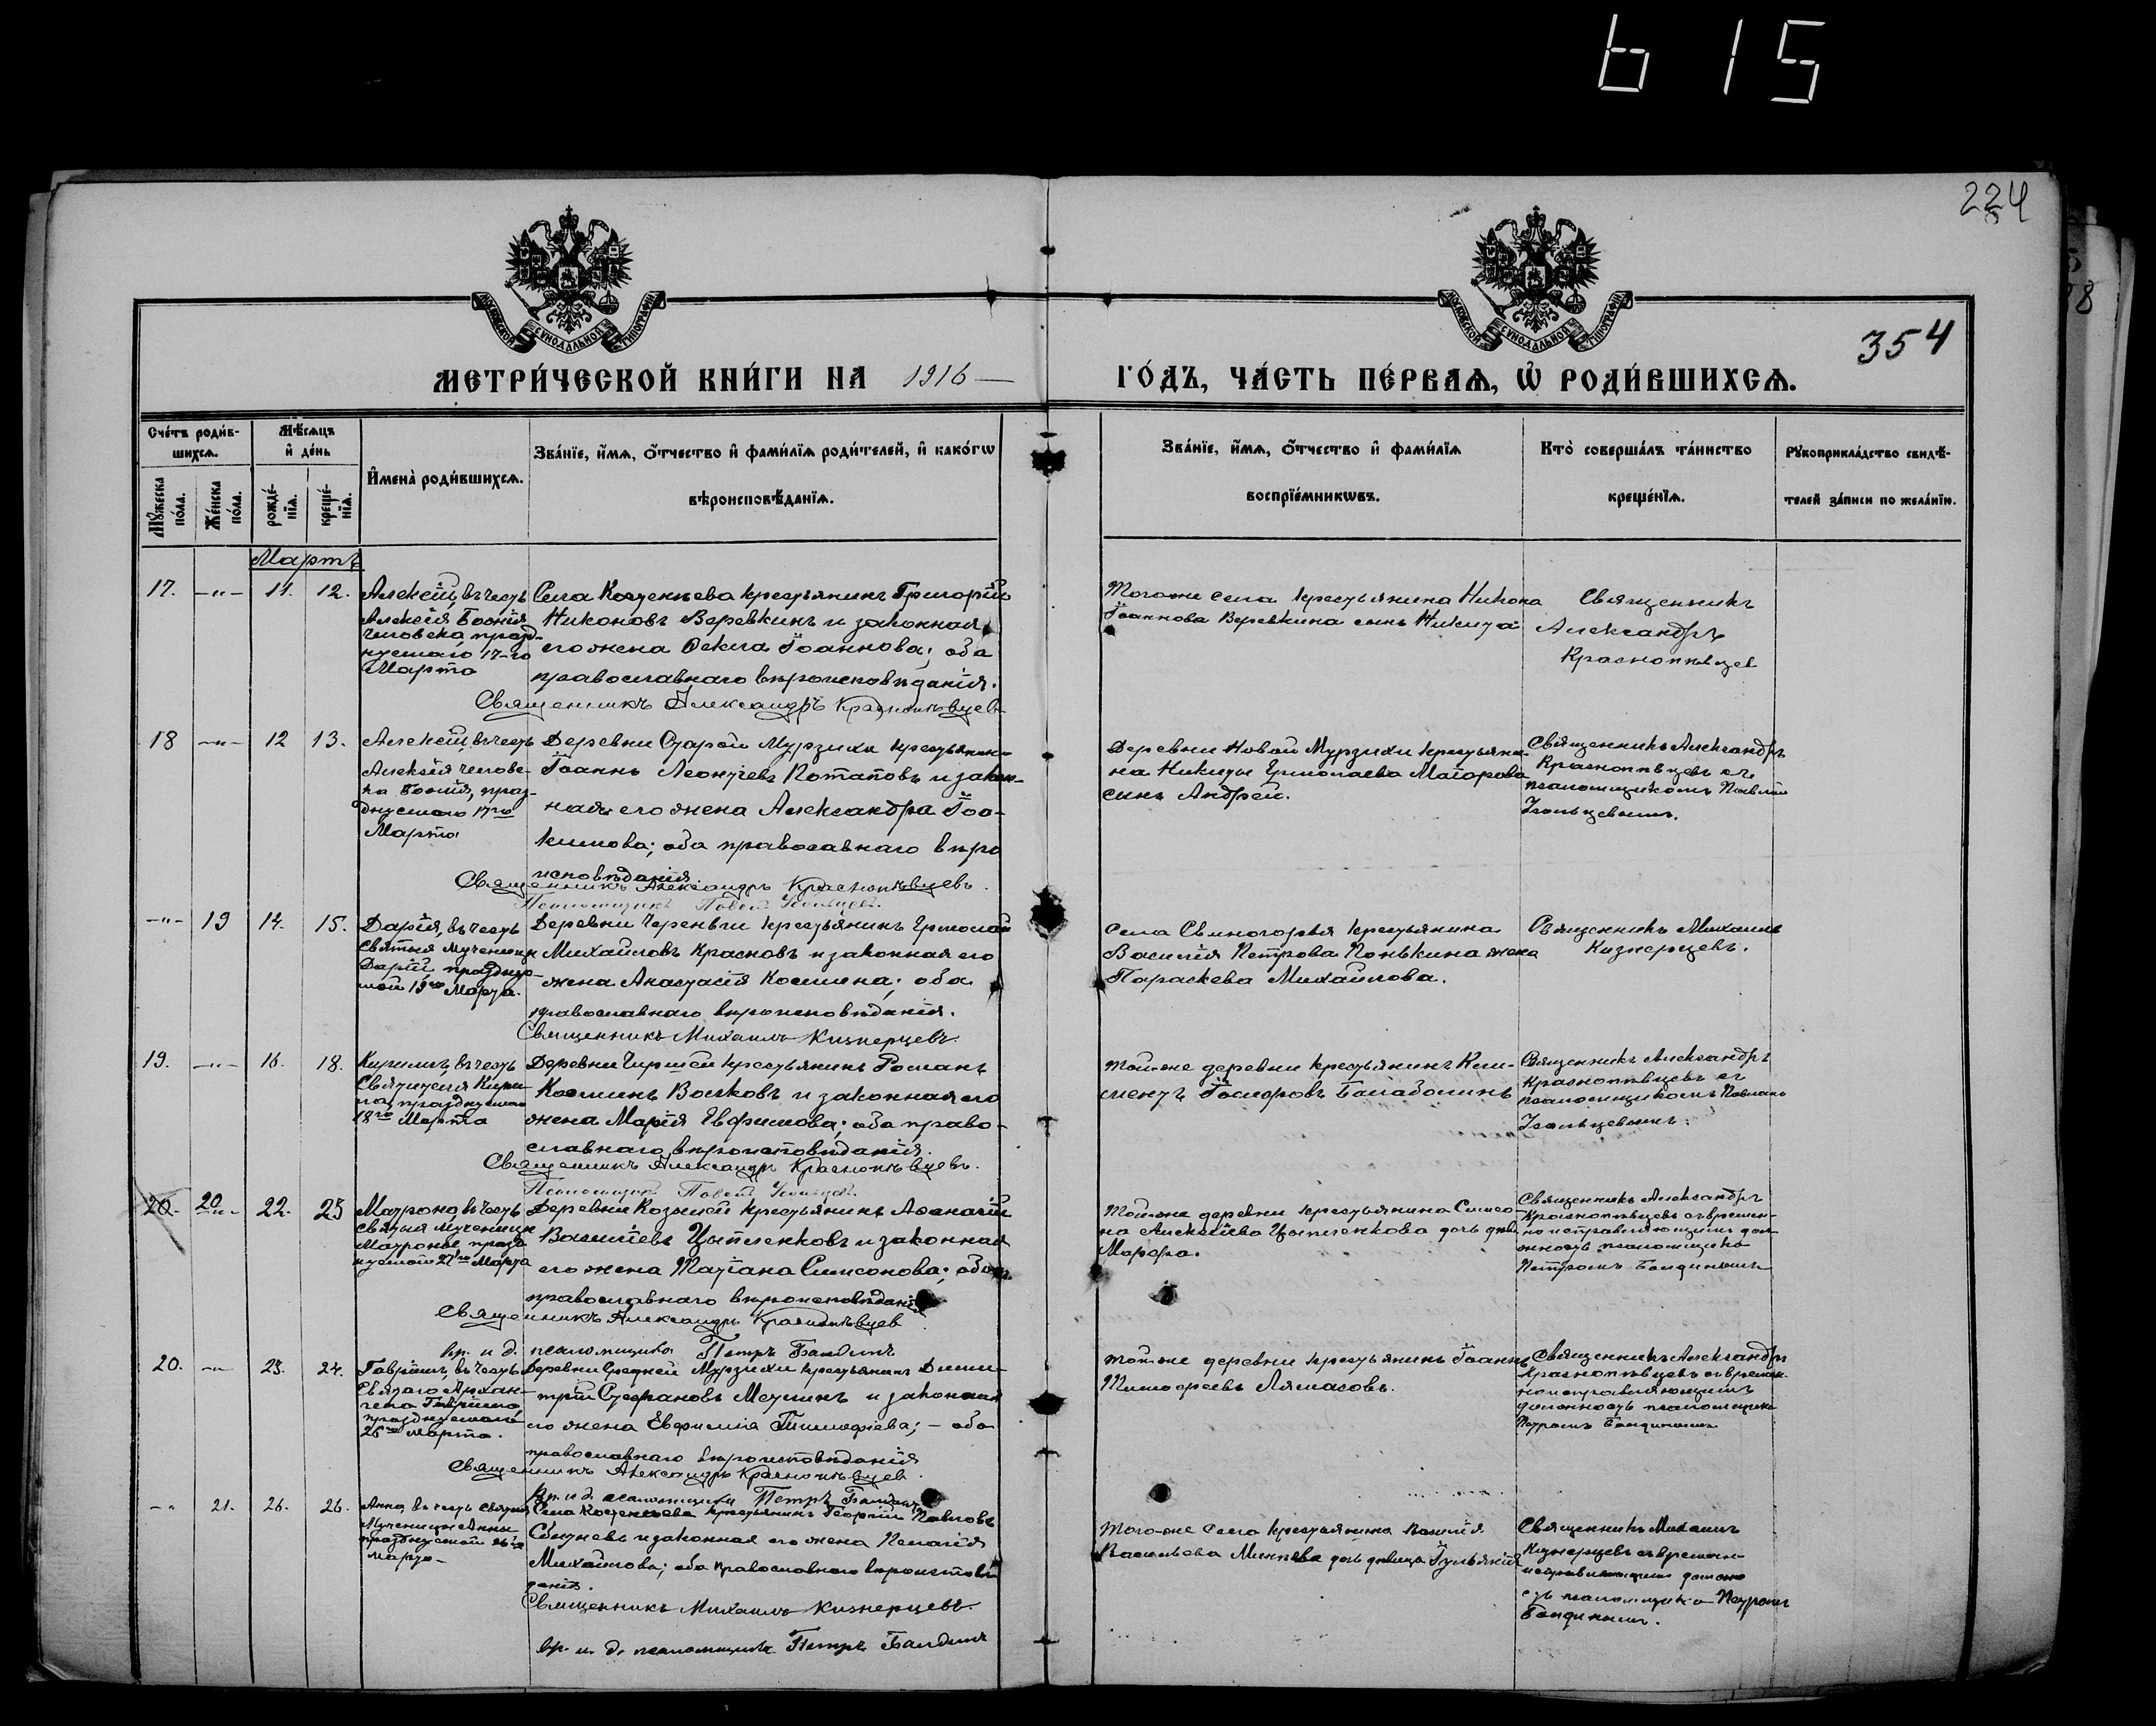 615
224
МОСКОВСКОЙ СѴНОДАЛЬНОЙ ТИПОГРАФІИ
МОСКОВСКОЙ СѴНОДАЛЬНОЙ ТИПОГРАФІИ
354
МЕТРИ́ЧЕСКОЙ КНИ́ГИ НА 1916
ГО́ДЪ, ЧА́СТЬ ПЕ́РВАѦ, Ѽ РОДИ́ВШИХСѦ.
Сче́тъ роди́в-
шихсѧ.
Мѣ́сѧцъ
и҆ де́нь
Мꙋ́жеска по́ла.
Же́нска по́ла.
рожде́-
нїѧ.
креще́-
нїѧ.
И҆мена̀ роди́вшихсѧ.
Зва́нїе, и҆́мѧ, ѻ҆́тчество и҆ фами́лїѧ роди́телей, и҆ како́гѡ
вѣроисповѣ́данїѧ.
Зва́нїе, и҆́мѧ, ѻ҆́тчество и҆ фами́лїѧ
воспрїе́мникѡвъ.
Кто̀ соверша́лъ та́инство
креще́нїѧ.
Рꙋкоприкла́дство свидѣ́-
телей за́писи по жела́нїю.
Мартъ
17. -"- 11. 12.
Алексій, въ честь
Алексія Божія
человека, празд-
нуемаго 17-го
Марта
Села Костенеева крестьянинъ Григорій
Никоновъ Веревкинъ и законная
его жена Іоаннова; оба
православнаго вѣроисповѣданія.
Священникъ Александръ Краснопѣвцевъ
Того-же села крестьянина Никона
Іоаннова Веревкина сынъ Никита
Священникъ
Александръ
Краснопѣвцев
18 -"- 12 13.
Алексій, въ честь
Алексія челове-
ка Божія, праз-
днуемаго 17го
Марта
Деревни Старой Мурзихи крестьянин-
Іоаннъ Леонтіевъ Потаповъ и закон-
ная его жена Александра Іоа-
кимова; оба православнаго вѣро
исповѣданія.
Священникъ Александръ Краснопѣвцевъ.
Псаломщикъ Павелъ
Деревни Новой Мурзихи крестьяни-
на Никиты Ермолаева Маіорова
сынъ Андрей.
Священникъ Александръ
Краснопѣвцевъ съ
псаломщикомъ Павломъ
-"- 19 14. 15.
Дарія, въ честь
Святыя Мученицы
Даріи, празднуе-
мой 19го Марта.
Деревни Череньги крестьянинъ Ермолай
Михайловъ Красновъ и законная его
жена Анастасія Космина; оба
православнаго вѣроисповѣданія.
Священникъ Михаилъ Кизнерцевъ.
Села Свиногорья крестьянина
Василія Петрова Понькина жена
Параскева Михайлова.
Священникъ Михаилъ
Кизнерцевъ.
19. -"- 16. 18.
Кириллъ, въ честь
Святителя Кири-
ла, празднуемаго
18го Марта
Деревни крестьянинъ Романъ
Косминъ Волковъ и законная его
жена Марія Евфимова; оба право-
славнаго вѣроисповѣданія.
Священникъ Александръ Краснопѣвцевъ.
Псаломщикъ Павелъ
Той-же деревни крестьянинъ Кли-
ментъ
Священникъ Александръ
Краснопѣвцевъ съ
псаломщикомъ Павломъ
20. 20 -"- 22. 23
Матрона, въ честь
Святыя Мученицы
Матроны, празд
нуемой 27го Марта
Деревни крестьянинъ Аѳанасій
Васильевъ Цыпленковъ и законная
его жена Татіана Симеонова; оба
православнаго вѣроисповѣданія
Священникъ Александръ Краснопѣвцев
вр. и. д. псаломщика Петръ Балдинъ
Той-же деревни крестьянина Симео-
на Алексѣева Цыпленкова дочь дѣв.
Марфа.
Священникъ Александръ
Краснопѣвцевъ съ времен-
но исправляющимъ дол-
жность псаломщика
Петромъ Балдинымъ
20. -"- 23. 24.
Гавріилъ, въ честь
Святаго Архан-
гела Гавріила,
празднуемаго
26го Марта.
Деревни Средней Мурзихи крестьянинъ Дими-
трій Стефановъ и законная
его жена Евфимія Тимоѳіева; - оба
православнаго вѣроисповѣданія
Священникъ Александръ Краснопѣвцев.
вр. и д. псаломщика Петръ Балдинъ
Той-же деревни крестьянинъ Іоаннъ
Тимоѳеевъ
Священникъ Александръ
Краснопѣвцевъ съ времен-
но исправляющимъ
должность псаломщика
Петромъ Балдинымъ
-"- 21. 26. 26.
Анна въ честь Святыя
Мученицы Анны
празднуемой 26го
Марта-
Села Костенеева крестьянинъ Георгій Павловъ
и законная его жена Пелагія
Михайлова; оба православнаго вѣроисповѣ-
данія.
Священникъ Михаилъ Кизнерцевъ.
вр. и. д. псаломщика Петръ Балдинъ
Того-же села крестьянина Василія
Васильева дочь дѣвица Іульянія
Священникъ Михаилъ
Кизнерцевъ съ временно
исправляющимъ должно
сть псаломщика Петромъ
Балдинымъ.